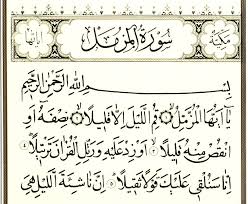 سُورَةُ المُزَّمِّل
مكية
بِسْمِ اللَّهِ الرَّحْمَٰنِ الرَّحِيمِ
يَا أَيُّهَا الْمُزَّمِّلُ ۝ قُمِ اللَّيْلَ إِلَّا قَلِيلًا ۝ نِصْفَهُ أَوِ
انْقُصْ مِنْهُ قَلِيلًا ۝ أَوْ زِدْ عَلَيْهِ وَرَتِّلِ الْقُرْآنَ تَرْتِيلًا ۝
إِنَّا سَنُلْقِي عَلَيْكَ قَوْلًا ثَقِيلًا ۝ إِنَّ نَاشِئَةَ اللَّيْلِ هِيَ